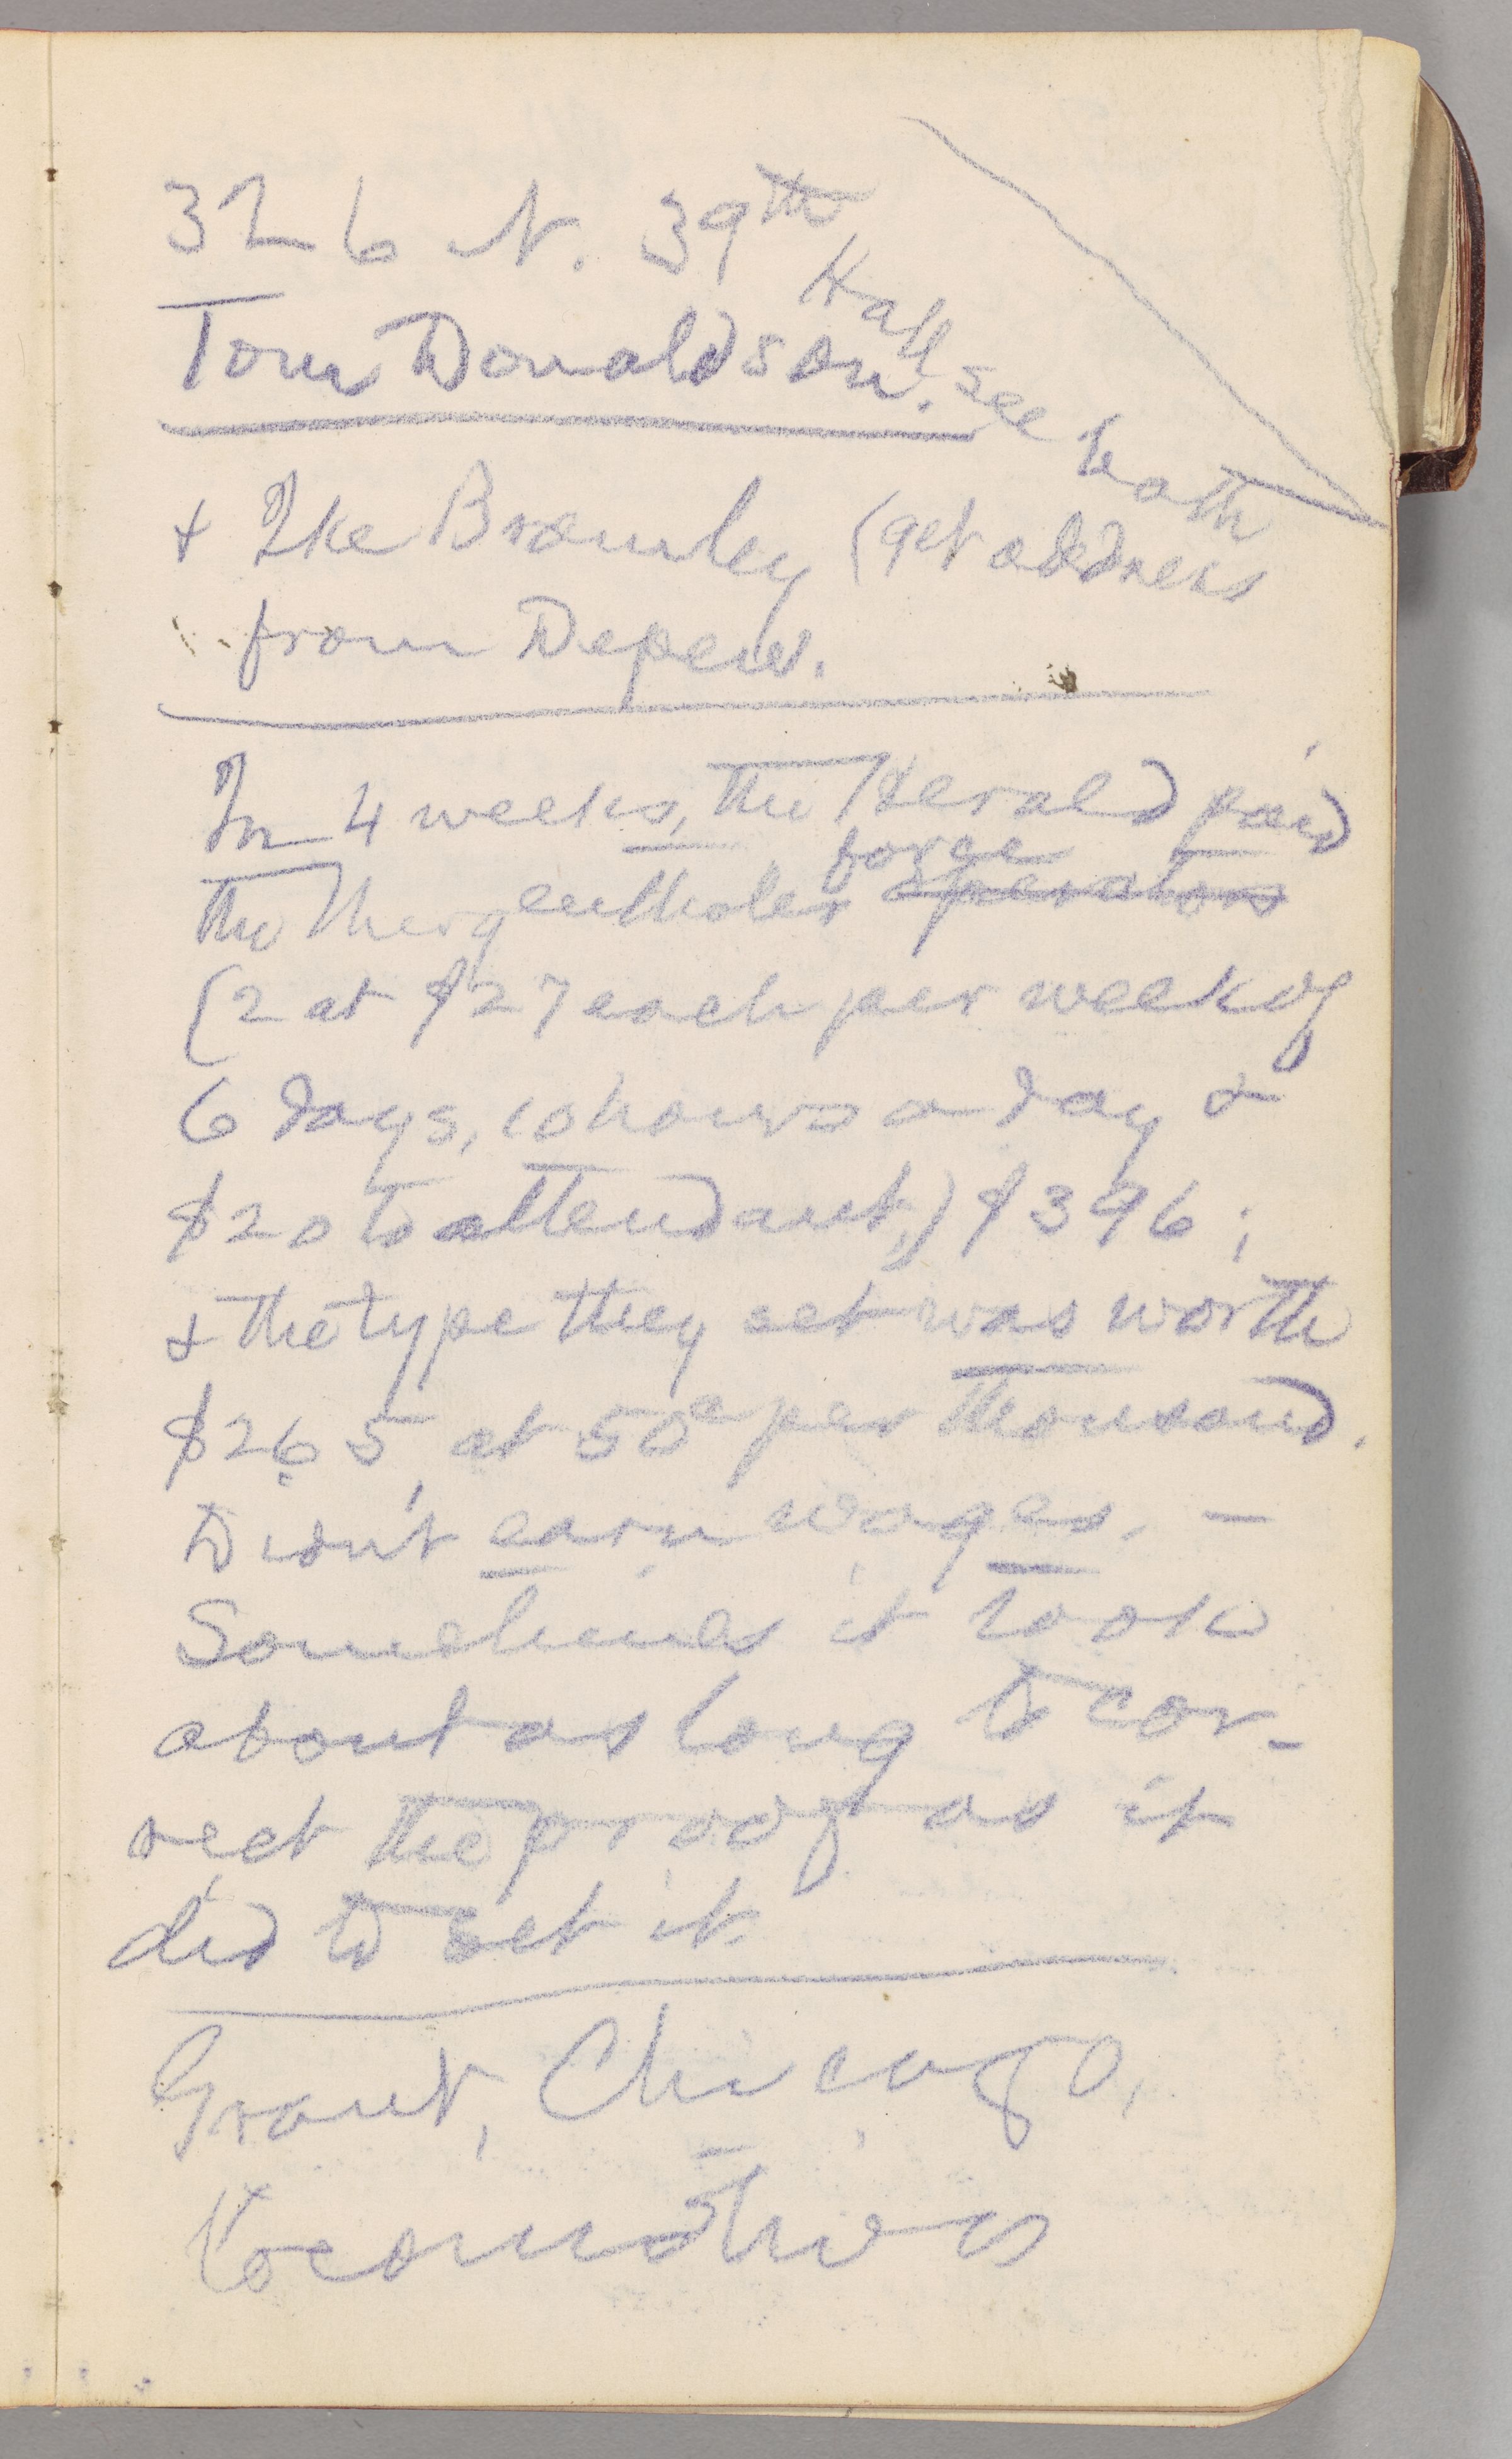 326 N. 39th
Tom Donaldson.
Hall see both
& Ike Bromley (get address
from Depew.
In 4 weeks, the Herald paid
force
the Mergenthaler operators
(2 at $27 each per week of
6 days, 10 hours a day &
$20 to attendant,) $396;
& the type they set was worth
$265, at 50c per thousand.
Didn't earn wages. —
Sometimes it took
about as long to cor-
rect the proof as it
did to set it.
Grant, Chicago,
Locomotives